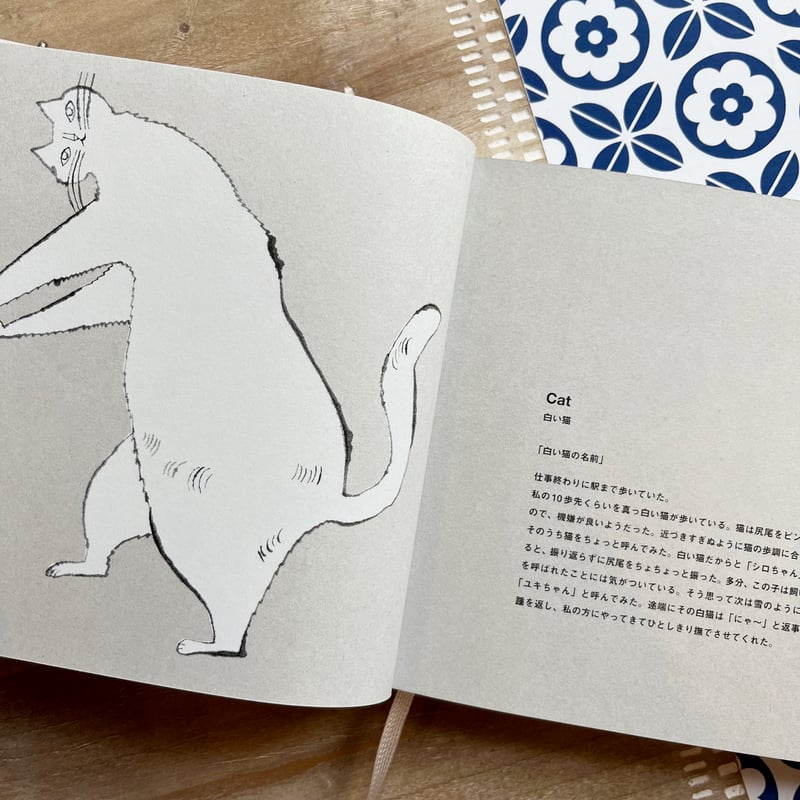 Cat
白い猫
「白い猫の名前」
仕事終わりに駅まで歩いていた。
私の10歩先くらいを真っ白い猫が歩いている。猫は尻尾をピン
ので、機嫌が良いようだった。近づきすぎぬように猫の歩調に合
そのうち猫をちょっと呼んでみた。白い猫だからと「シロちゃん
ると、振り返らずに尻尾をちょちょっと振った。多分、この子は飼
を呼ばれたことには気がついている。そう思って次は雪のように
「ユキちゃん」と呼んでみた。途端にその白猫は「にゃ〜」と返事
踵を返し、私の方にやってきてひとしきり撫でさせてくれた。